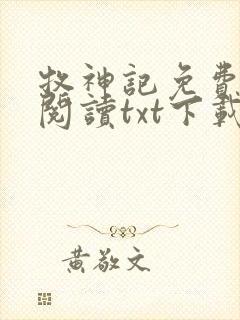 牧神記免費
閱讀txt下載
黃敬文